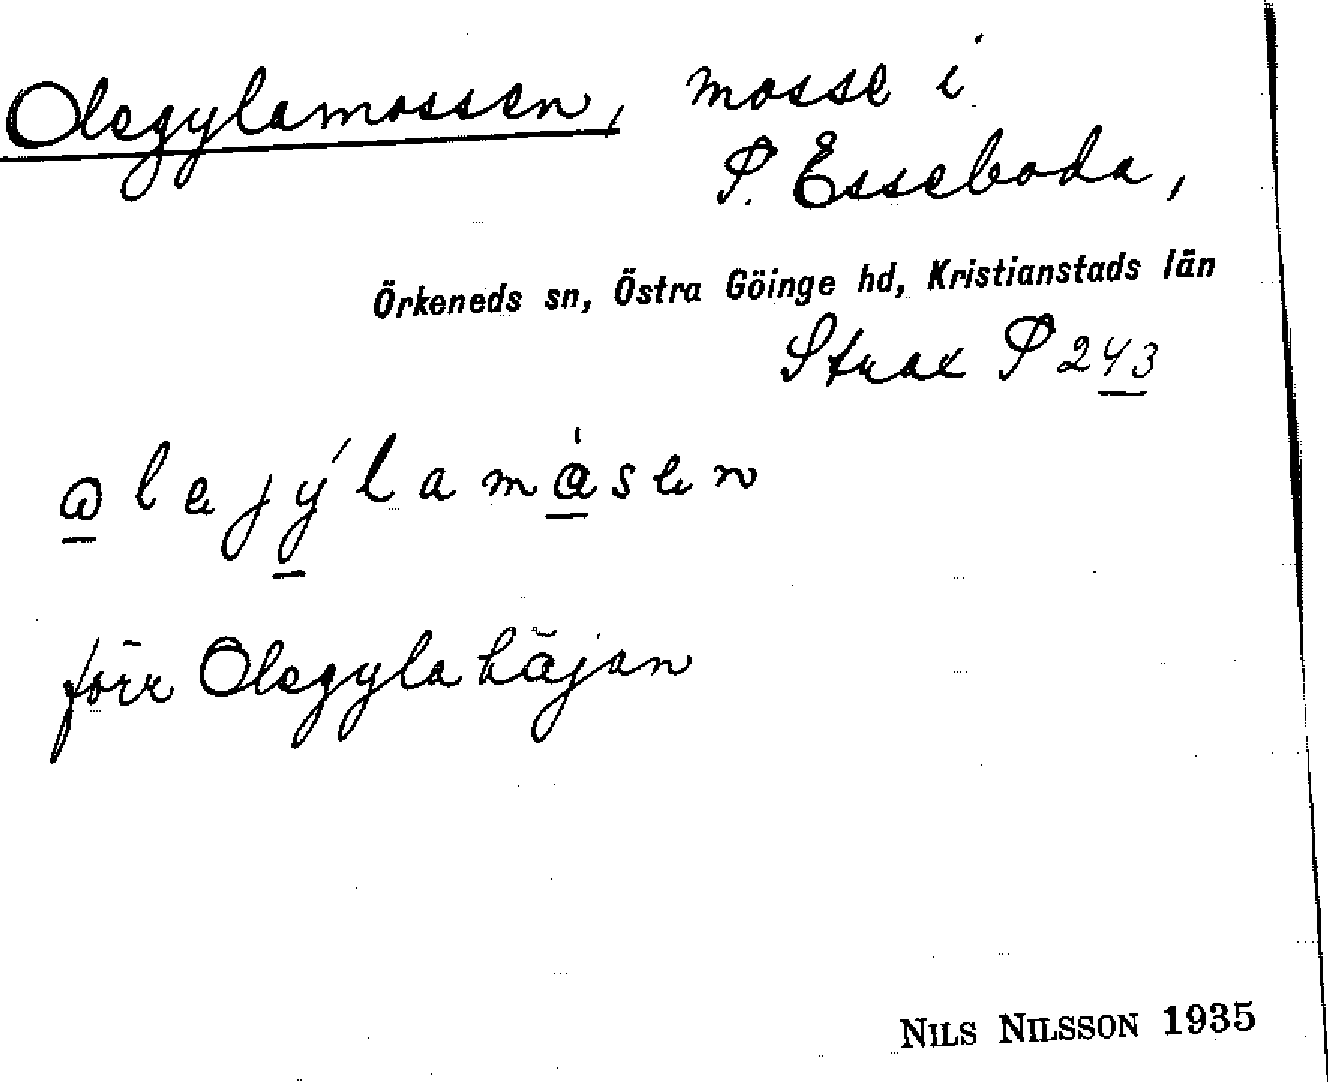 Olegylamossen, mosse i
S. Esseboda,
Örkeneds sn, Östra Göinge hd, Kristianstads län
Strax S 243
förr Olegyla
NILS NILSSON 1935